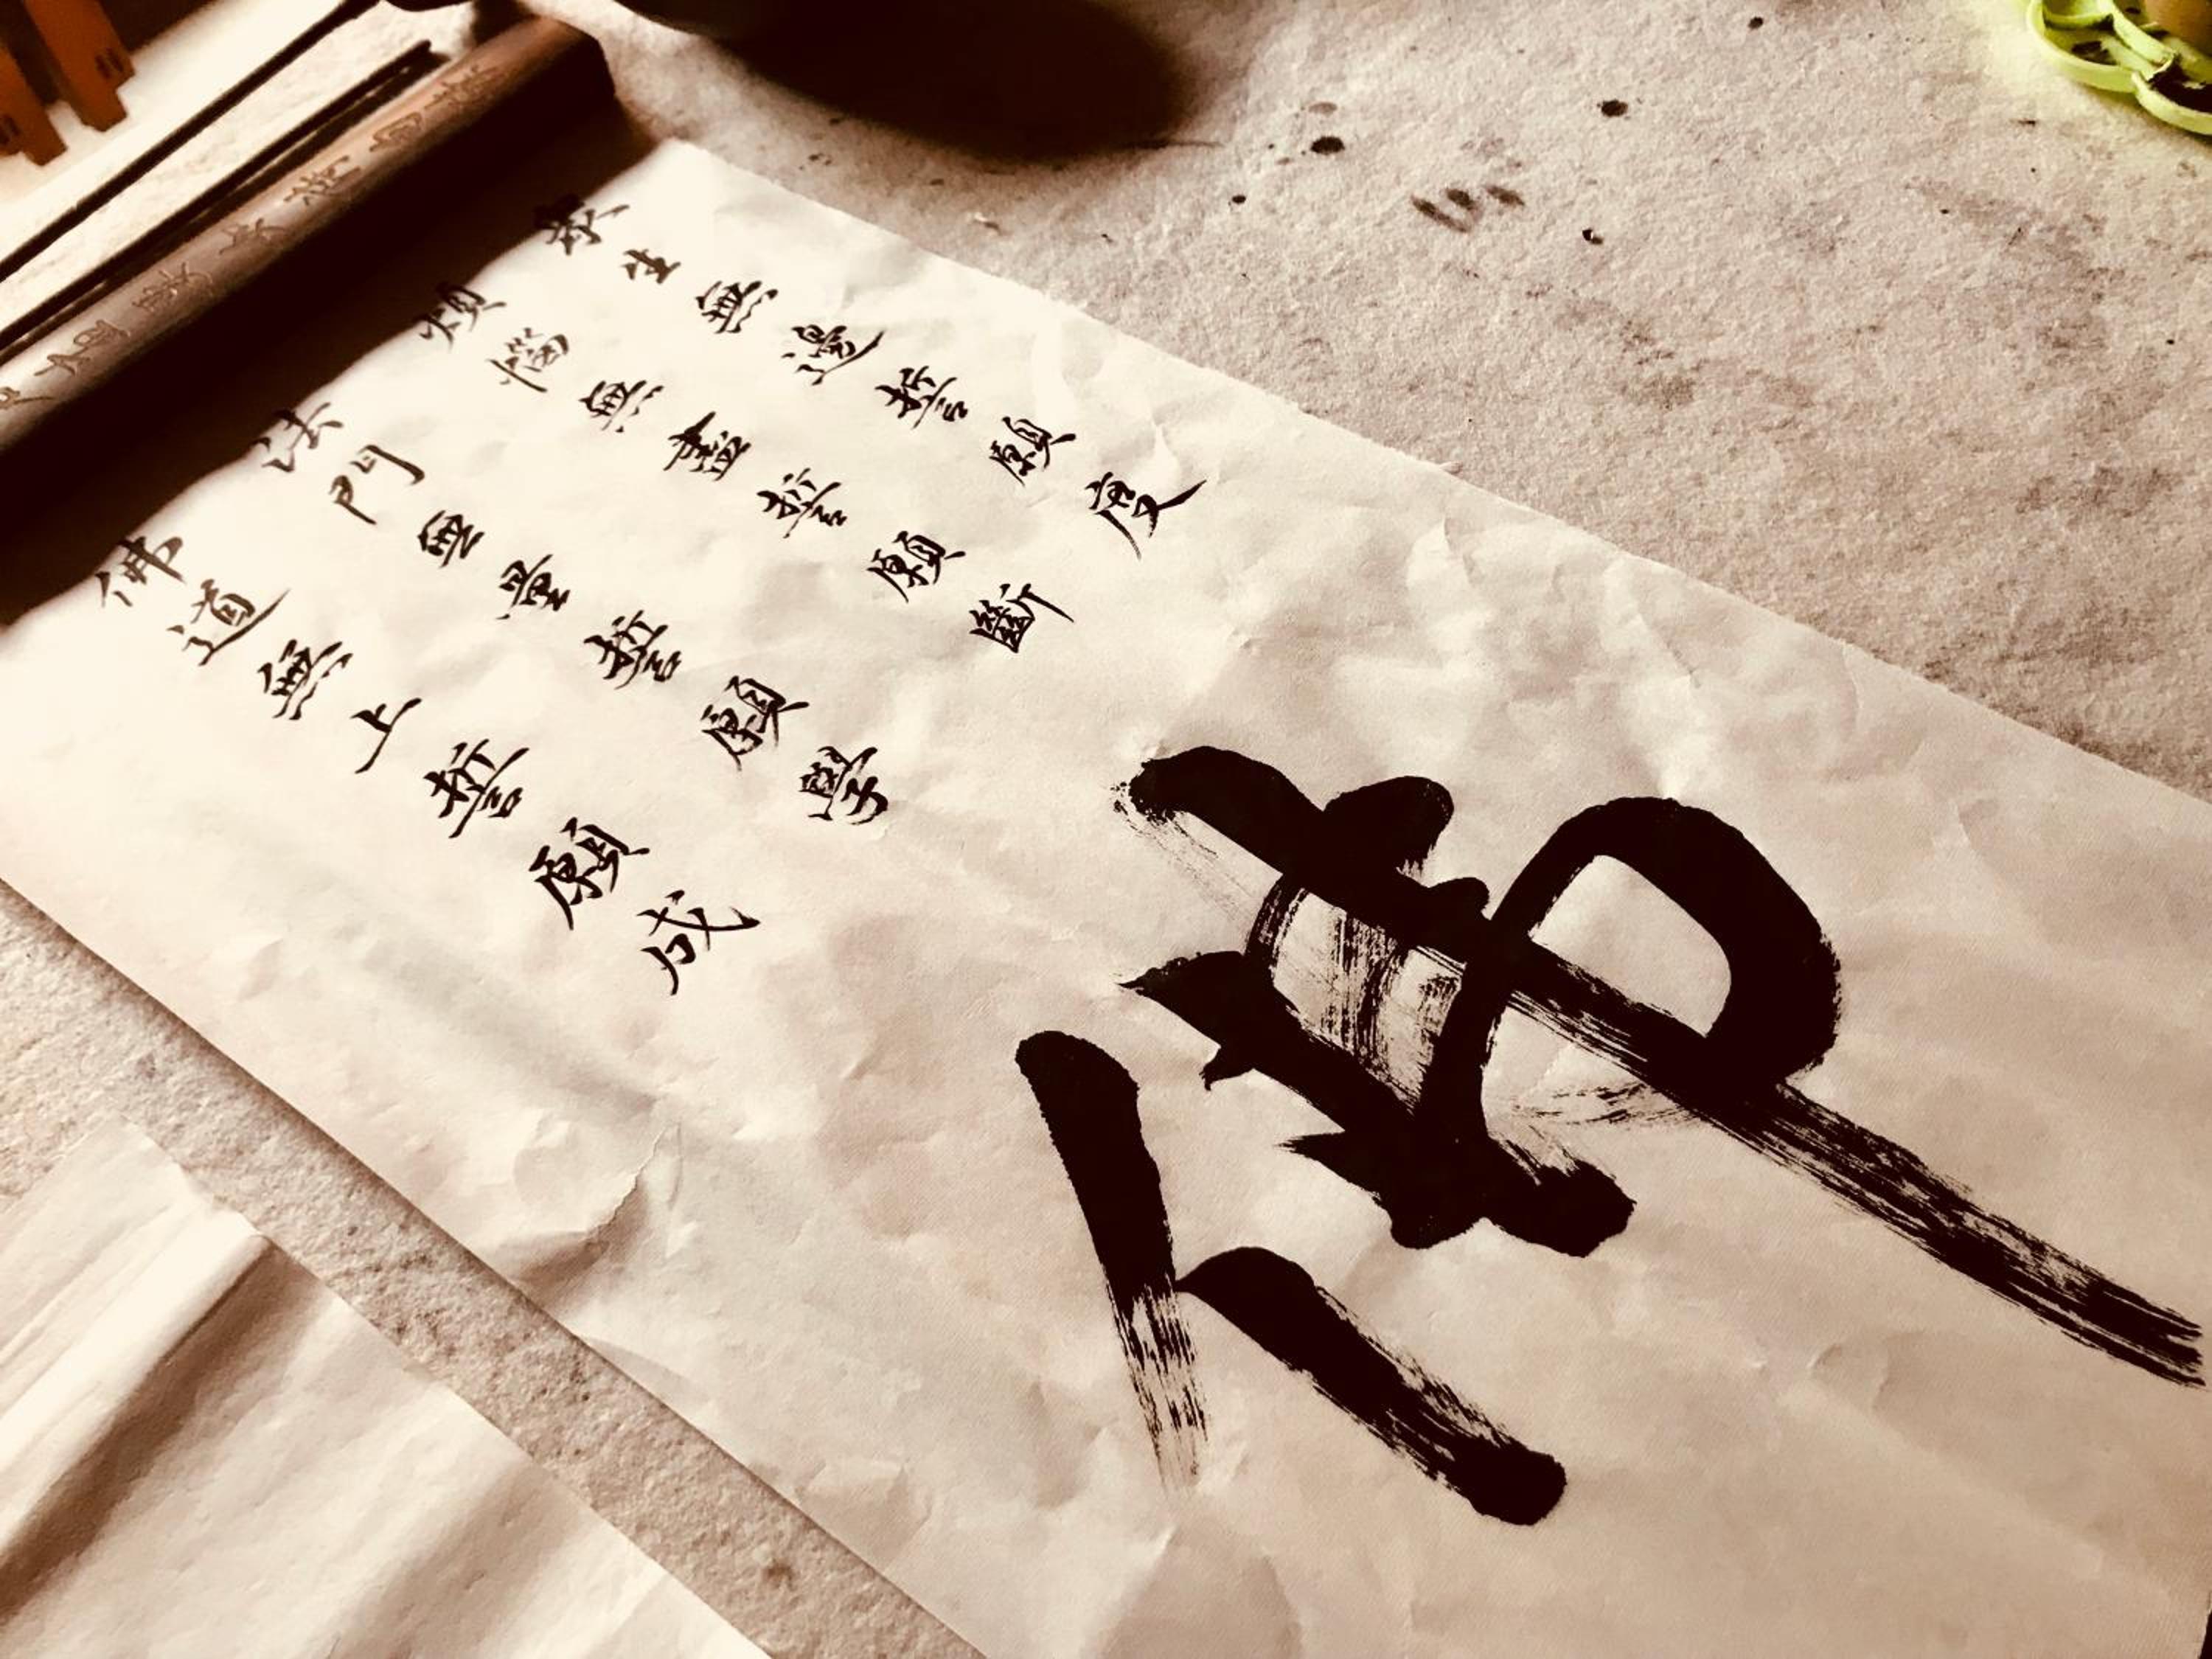 眾生無邊誓願度
煩惱無盡誓願斷
法門無量誓願學
佛道無上誓願成
佛